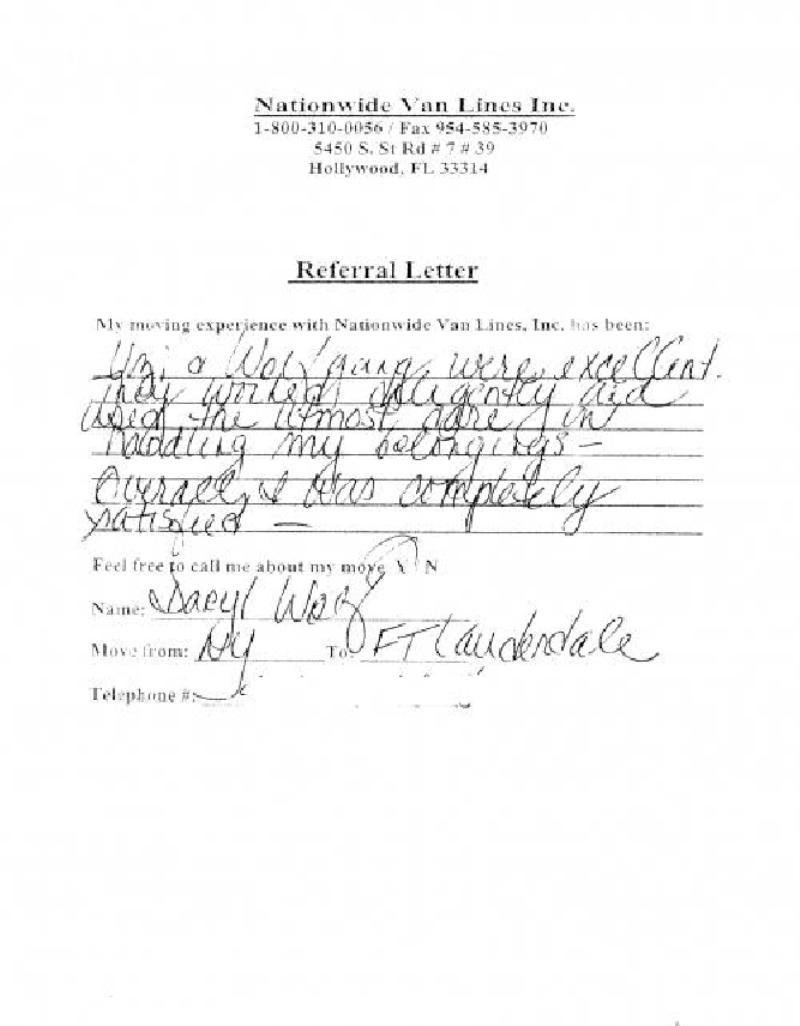 Nationwide Van Lines Inc.
1-800-310-0056 / Fax 954-585-3970
5450 S. St Rd # 7 # 39
Hollywood, FL 33314
Referral Letter
My moving experience with Nationwide Van Lines, Inc. has been:
Uzi & Wolfgang were excellent.
They worked diligently and
used the utmost care in
handling my belongings -
Overall, I was completely
satisfied -
Feel free to call me about my move Y N
Name: Daryl
Move from: NY To: FT Lauderdale
Telephone #: